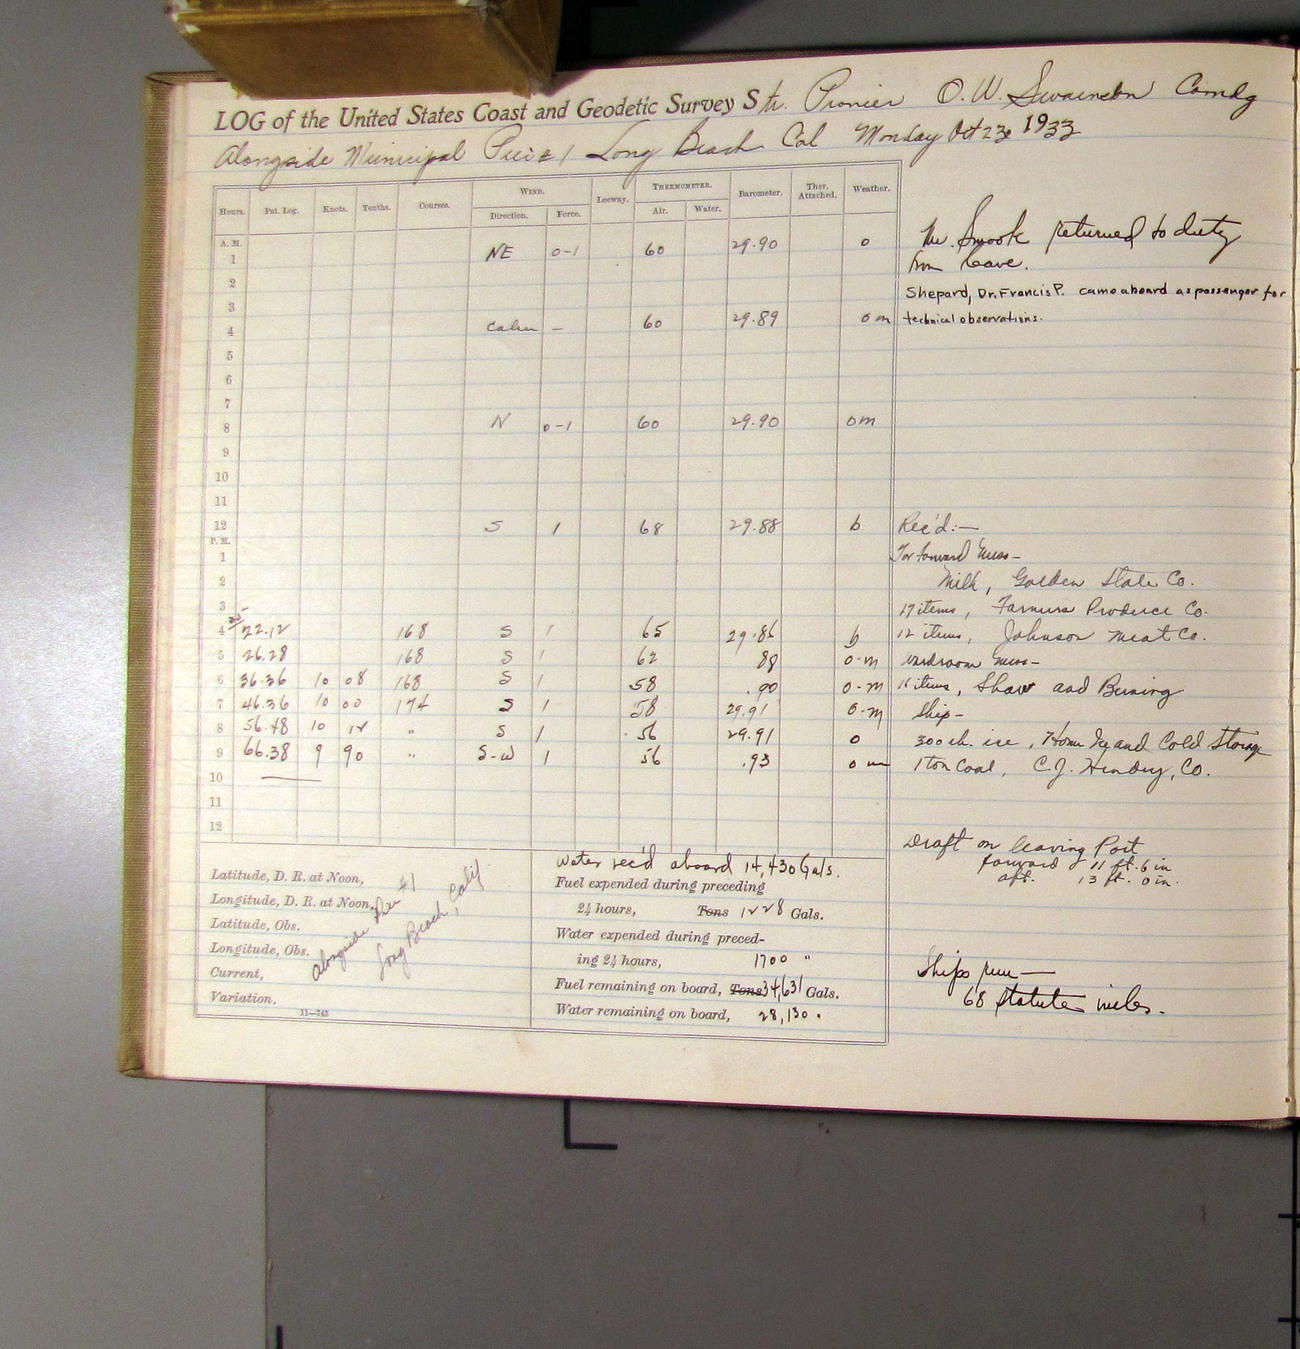 LOG of the United States Coast and Geodetic Survey Str. Pionier O. W. Swainson Comdg
Alongside Municipal Pier #1 Long Beach Cal Monday Oct 23 1933
Hours. Pat. Log. Knots. Tenths. Courses. WIND. Direction. Force. Leeway. THERMOMETER. Air. Water. Barometer. Ther. Attached. Weather.
A. M.
1 NE 0-1 60 29.90 o
2
3
4 calm - 60 29.89 o m
5
6
7
8 N 0-1 60 29.90 om
9
10
11
12 S 1 68 29.88 b
P. M.
1
2
3
4 22.12 168 S 1 65 29.86 b
5 26.28 168 S 1 62 88 o-m
6 36.36 10 08 168 S 1 58 .90 o-m
7 46.36 10 00 174 S 1 58 29.91 o-m
8 56.48 10 12 " S 1 56 29.91 o
9 66.38 9 90 " S-W 1 56 .93 o m
10
11
12
Mr. Smook returned to duty
from leave.
Shepard, Dr. Francis P. came aboard as passenger for
technical observations.
Rec'd:—
For forward mess—
Milk, Golden State Co.
17 items, Farmers Produce Co.
12 items, Johnson Meat Co.
wardroom mess—
items, Shaw and Bening
Ship—
300 lb. ice, Home Ice and Cold Storage
1 ton Coal, C.J. Hendry, Co.
Draft on leaving Port
forward 11 ft. 6 in
aft. 13 ft. 0 in.
Ships run—
68 statute miles.
Latitude, D. R. at Noon,
Longitude, D. R. at Noon,
Latitude, Obs.
Longitude, Obs.
Current,
Variation.
Alongside Pier #1
Long Beach, Calif
11—743
Water rec'd aboard 14,430 Gals.
Fuel expended during preceding
24 hours, Tons 1228 Gals.
Water expended during preced-
ing 24 hours, 1700 "
Fuel remaining on board, Tons 34,631 Gals.
Water remaining on board, 28,130 "